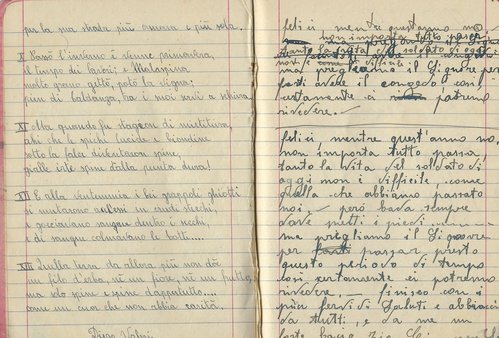 per la sua strada più amara e più sola.
X Passò l'inverno e venne primavera,
il tempo dei lavori; e Malaspina
molto grano gettò, potò la vigna;
pien di baldanza, tra i suoi servi a schiera.
XI Ma quando fu stagion di mietitura,
ahi che le spighe lucide e bionde
sotto la falce diventaron spine,
gialle irte spine dalla punta dura!
XII E alla vendemmia i bei grappoli ghiotti
si mutarono in aridi stecchi,
e gocciavano sangue dentro i secchi,
e di sangue colmavano le botti....
XIII Quella terra da allora più non dà
un filo d'erba, né un fiore, né un frutto,
ma solo spine e spine dappertutto....
come un cuor che non abbia carità.
felici mentre quest'anno no
non importa tutto passa
tanto la vita del soldato di oggi
non è difficile
ma preghiamo il Signore per
certamente ci potremo
rivedere.
felici, mentre quest'anno no.
non importa tutto passa
tanto la vita del soldato di
oggi non è difficile, come
quella che abbiamo passato
noi, però bada sempre
dove metti i piedi
ma preghiamo il Signore
per passar presto
questo periodo di tempo
così certamente ci potremo
rivedere, finisco con i
più fervidi saluti e abbracci
da tutti, e da me un
forte bacio